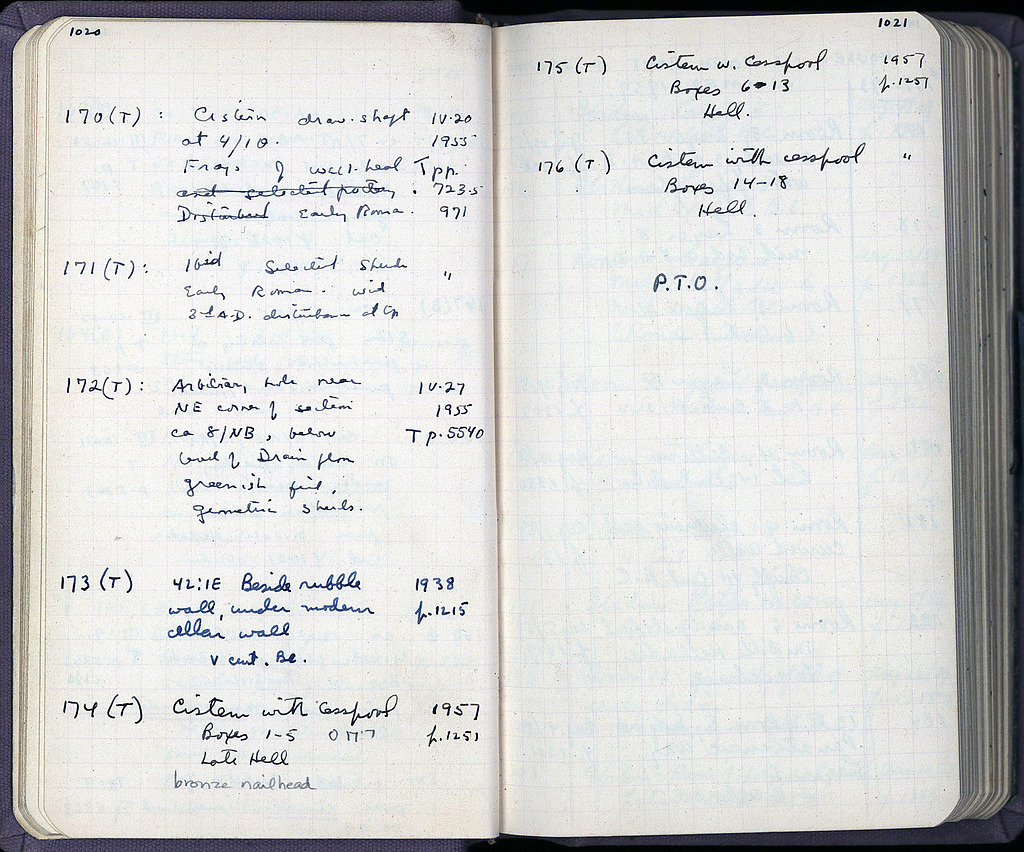 1020
170(T) : Cistern draw-shaft IV-20
at 4/10. 1955
Frags of well-head T pp.
and selected pottery . 723.5
Disturbed Early Roman. 971
171(T) : Ibid Selected Sherds "
Early Roman. with
3d A.D. disturbance at top
172(T) : hole near IV-27
NE corner of section 1955
ca 8/NB, below T p. 5540
level of Drain floor
greenish fill,
geometric sherds.
173 (T) 42:1E Beside rubble 1938
wall, under modern p.1215
cellar wall
V cent. BC.
174 (T) Cistern with Cesspool 1957
Boxes 1-5 p.1251
Late Hell
bronze nailhead
1021
175 (T) Cistern w. Cesspool 1957
Boxes 6-13 p.1251
Hell.
176 (T) Cistern with cesspool "
Boxes 14-18
Hell.
P.T.O.